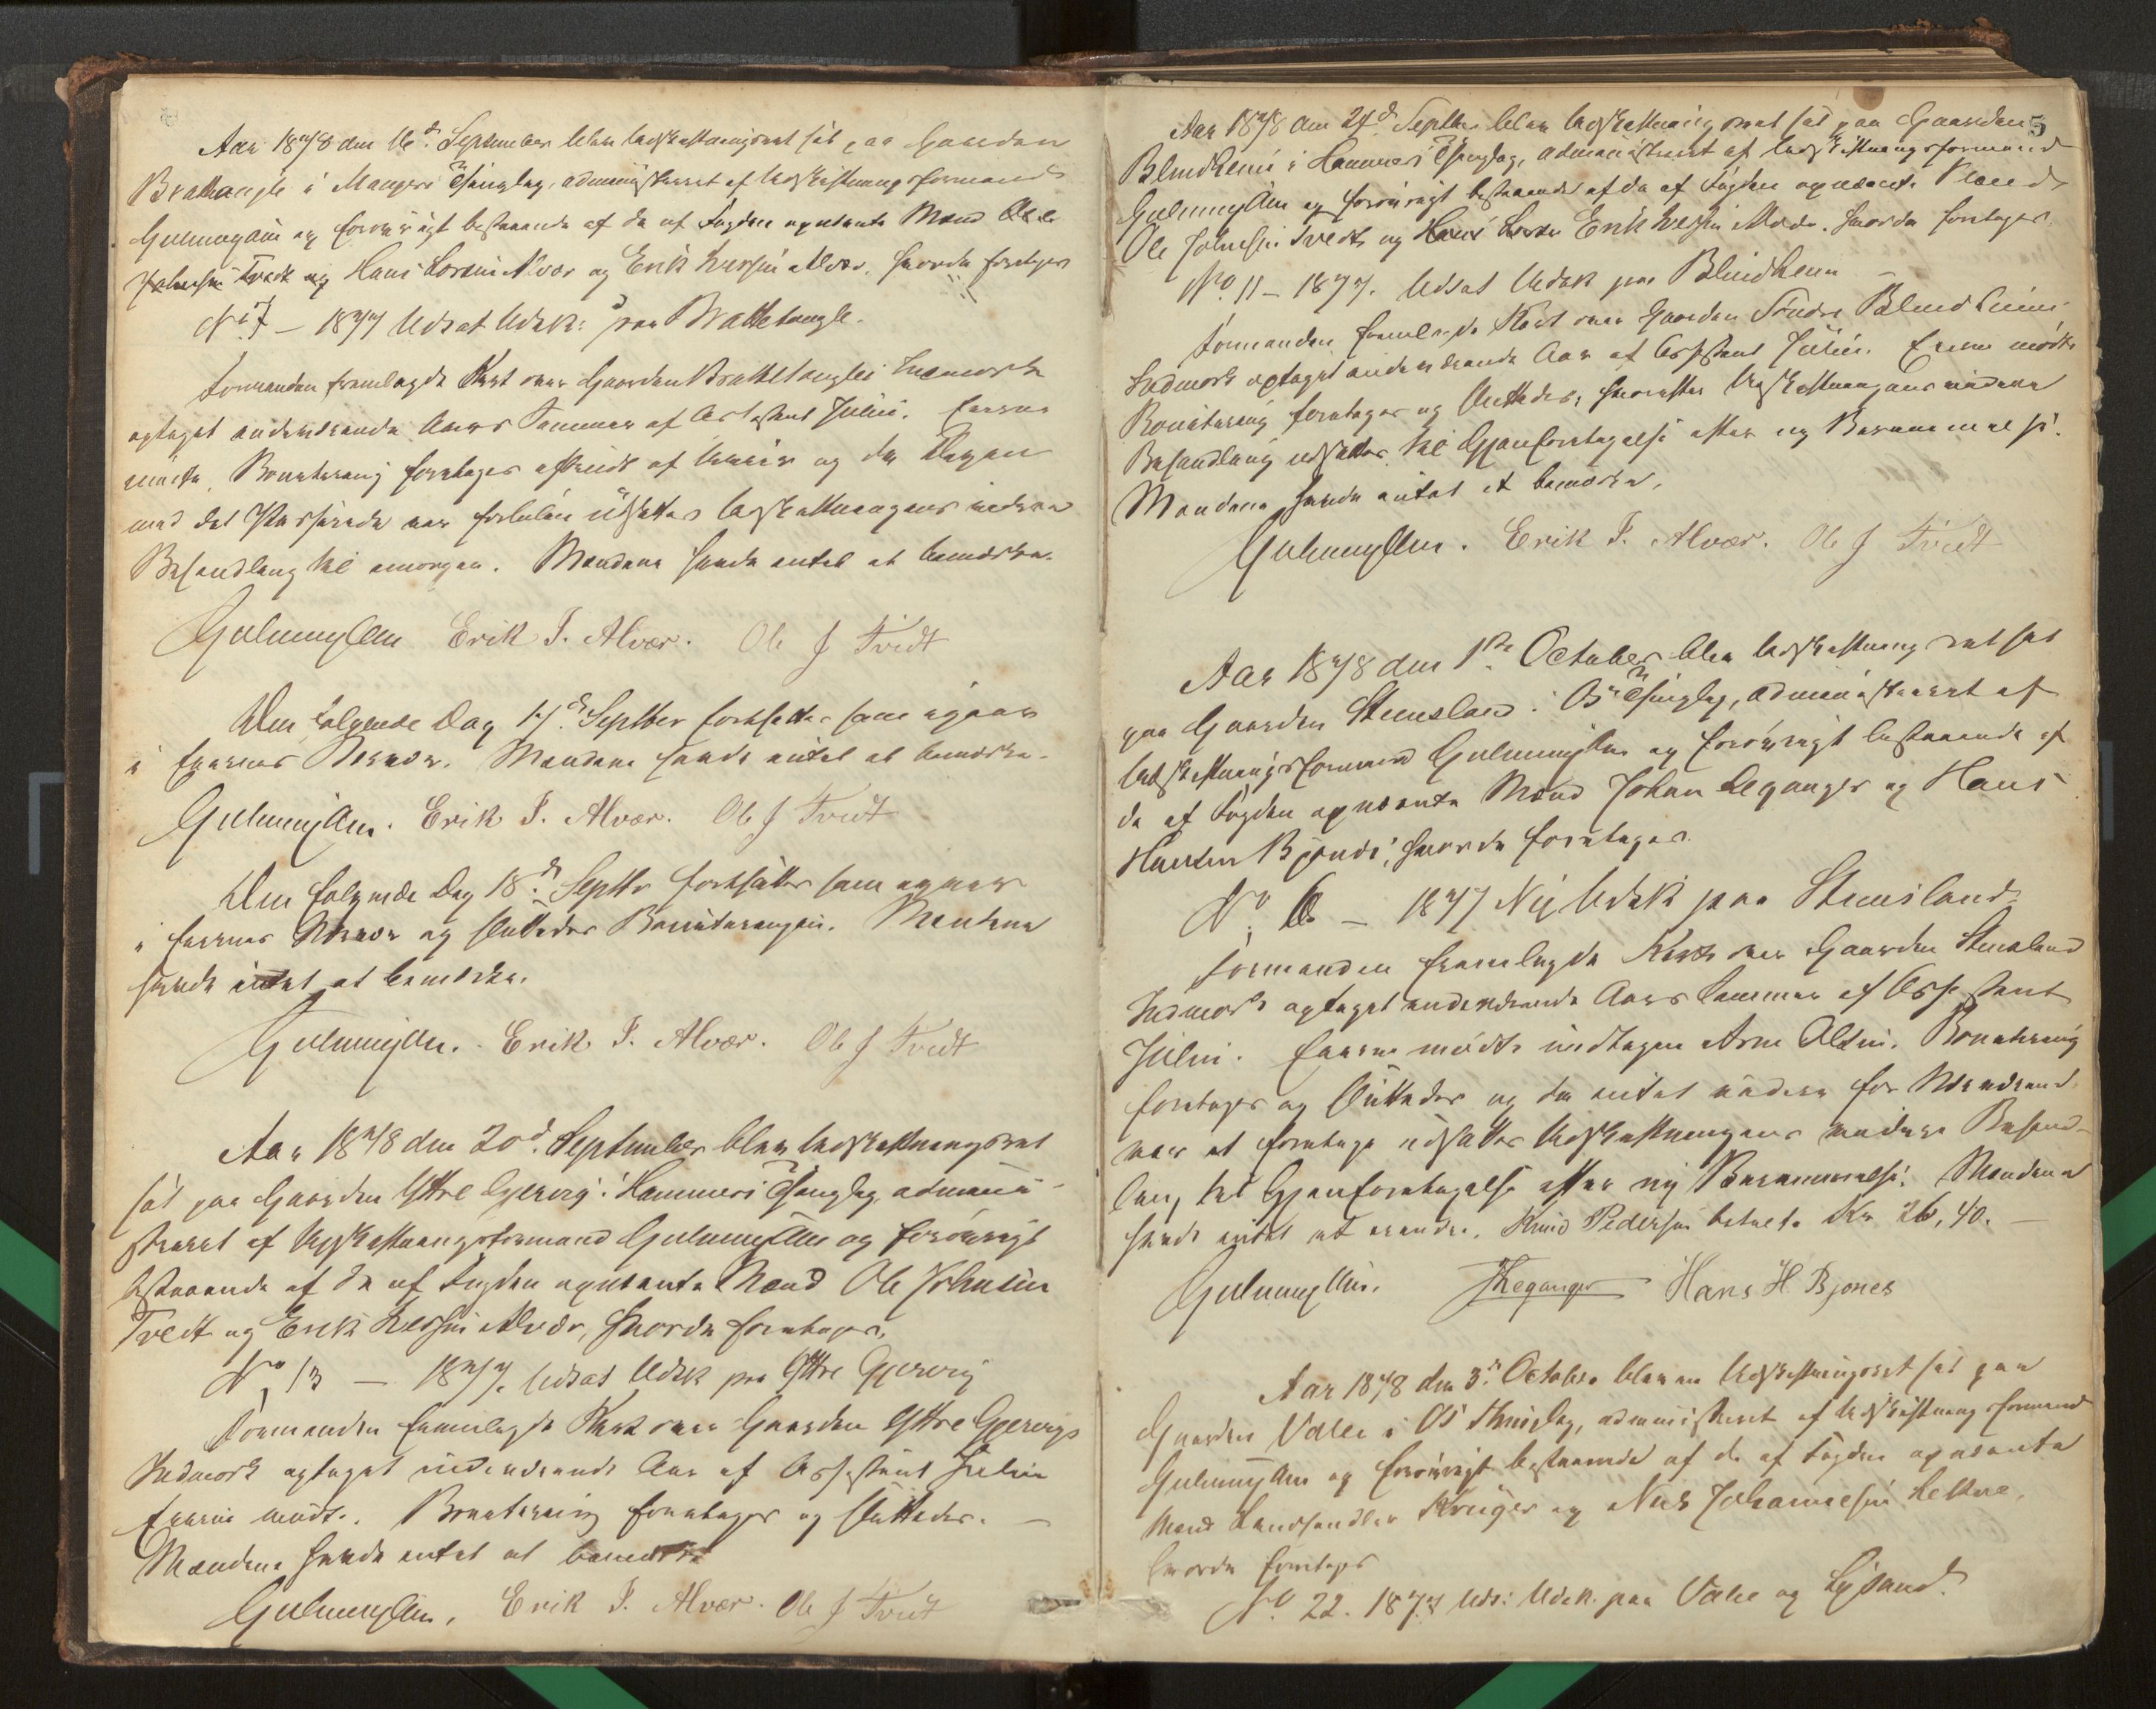 Aar 1878 den 16d. September blev Udskiftningsret sat paa Gaarden
Brattetangle i Mangers Thinglag, administreret af Udskiftningsformand
og forøvrigt bestaaende af de af Fogden opnævnte Mænd Ole
Johnsen Tvedt og Hans Larsen Alvær og Erik Iversen Alvær, hvorda foretoges
No. 7 – 1877 Udsat Udsk: paa Brattetangle.
Formanden fremlagde Kart over Gaarden Brattetangles Indmark
optaget indeværende Aars Sommer af Assistent Juliu. Eierne
mødte. Bonitering foretoges afbrudt af Uveir og da Dagen
med det Passerede var forløben udsattes Udskiftningens videre
Behandling til imorgen. Mændene havde intet at bemærke.
Erik I. Alvær. Ole J Tvedt
Den følgende Dag 17d. Septbr fortsattes som igaar
i Eiernes Nærvær. Mændene havde intet at bemærke.
Erik I. Alvær. Ole J Tvedt
Den følgende Dag 18d. Septbr fortsattes som igaar
i Eiernes Nærvær og sluttedes Boniteringen. Mændene
havde intet at bemærke.
Erik I. Alvær. Ole J Tvedt
Aar 1878 den 20d. September blev Udskiftningsret
sat paa Gaarden Yttre Gjervig i Hammers Thinglag, admini-
streret af Udskiftningsformand og forøvrigt
bestaaende af de af Fogden opnævnte Mænd Ole Johnsen
Tvedt og Erik Iversen Alvær, hvorda foretoges.
No. 13 – 1877. Udsat Udsk paa Yttre Gjervig
Formanden fremlagde Kart over Gaarden Yttre Gjervigs
Indmark optaget indeværende Aar af Assistent Juliu
Eierne mødte. Bonitering foretoges og sluttedes. –
Mændene havde intet at bemærke
Erik I. Alvær. Ole J Tvedt
Aar 1878 den 24d. Septbr blev Udskiftningsret sat paa Gaarden
5
Blindheim i Hammers Thinglag, administreret af Udskiftningsformand
og forøvrigt bestaaende af de af Fogden opnævnte Mænd
Ole Johnsen Tvedt og Erik Iversen Alvær. hvorda foretoges.
No. 11 – 1877. Udsat Udsk paa Blindheim –
Formanden fremlagde Kart over Gaarden Søndre Blindheims
Indmark optaget indeværende Aar af Assistent Juliu. Eierne mødte
Bonitering foretoges og sluttedes, hvorefter Udskiftningens videre
Behandling udsattes til Gjenforetagelse efter ny Berammelse.
Mændene havde intet at bemærke.
Erik I. Alvær. Ole J Tvedt
Aar 1878 den 1ste October blev Udskiftningsret sat
paa Gaarden Stensland i Os Thinglag, administreret af
Udskiftningsformand og forøvrigt bestaaende af
de af Fogden opnævnte Mænd Johan Leganger og Hans
Hansen Bjones, hvorda foretoges.
No. 6. – 1877 Ny Udsk paa Stensland
Formanden fremlagde Kart over Gaarden Stensland
Indmark optaget indeværende Aars Sommer af Assistent
Juliu. Eierne mødte undtagen Arne Olsen. Bonitering
foretoges og sluttedes og da intet videre for Nærværende
var at foretage udsattes Udskiftningens videre Behand-
ling til Gjenforetagelse efter ny Berammelse. Mændene
havde intet at erindre. Knud Pedersen betalte Kr 26,40. –
JLeganger Hans H Bjones
Aar 1878 den 3d. October blev en Udskiftningsret sat paa
Gaarden Valle i Os Thinglag, administreret af Udskiftningsformand
og forøvrigt bestaaende af de af Fogden opnævnte
Mænd Landhandler Krüger og Nils Johannesen
hvorda foretoges
No. 22. 1877 Uds: Udsk. paa Valle og Lysand.